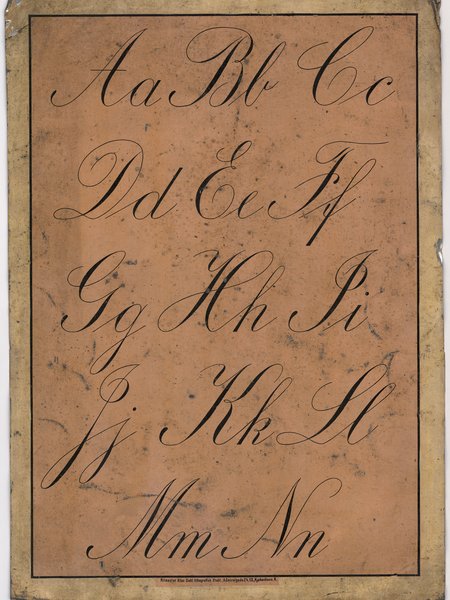 Aa Bb Cc
Dd Ee Ff
Gg Hh Ii
Jj Kk Ll
Mm Nn